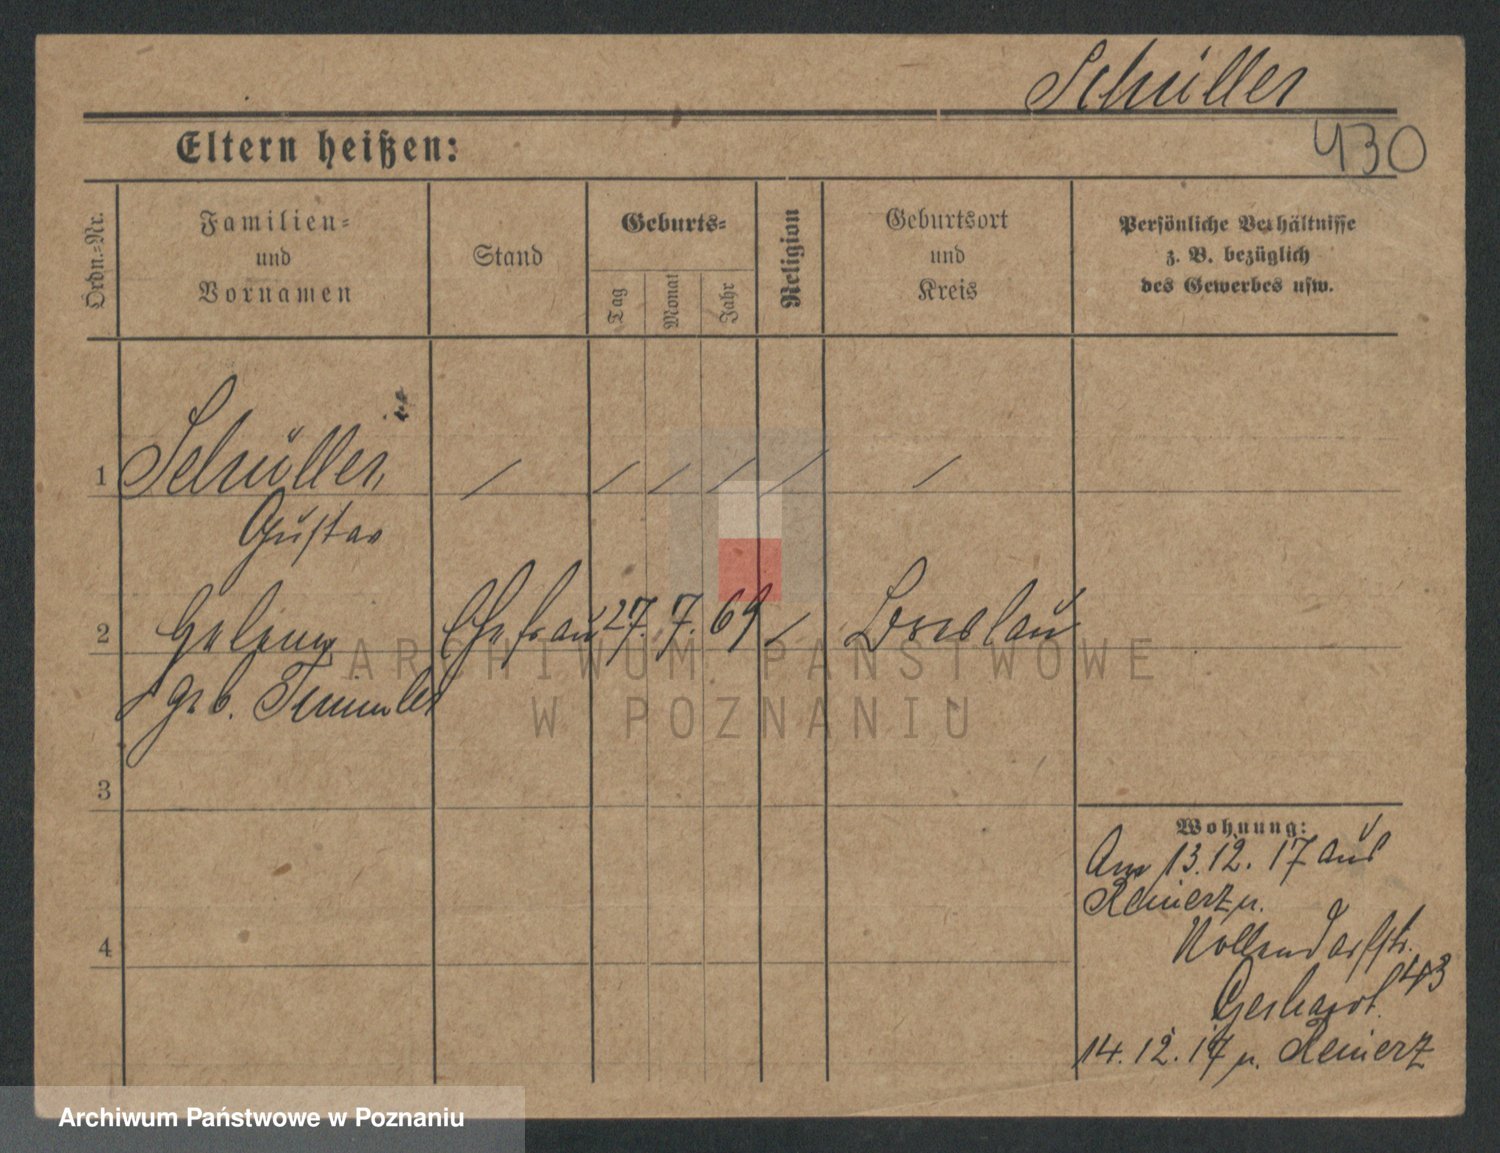 Schüller
430
Eltern heißen:
Ordn.-Nr.
Familien-
und
Vornamen
Stand
Geburts-
Tag
Monat
Jahr
Religion
Geburtsort
und
Kreis
Persönliche Verhältnisse
z. B. bezüglich
des Gewerbes usw.
1 Schüller, / / / / / /
Gustav
2 Ehefrau 27. 7. 69 / Breslau
geb.
3
4
Wohnung:
Am 13. 12. 17 aus
Reinerz n.
Nollendorfstr.
43
Gerhardt.
14. 12. 17 n. Reinerz
ARCHIWUM PAŃSTWOWE
W POZNANIU
Archiwum Państwowe w Poznaniu